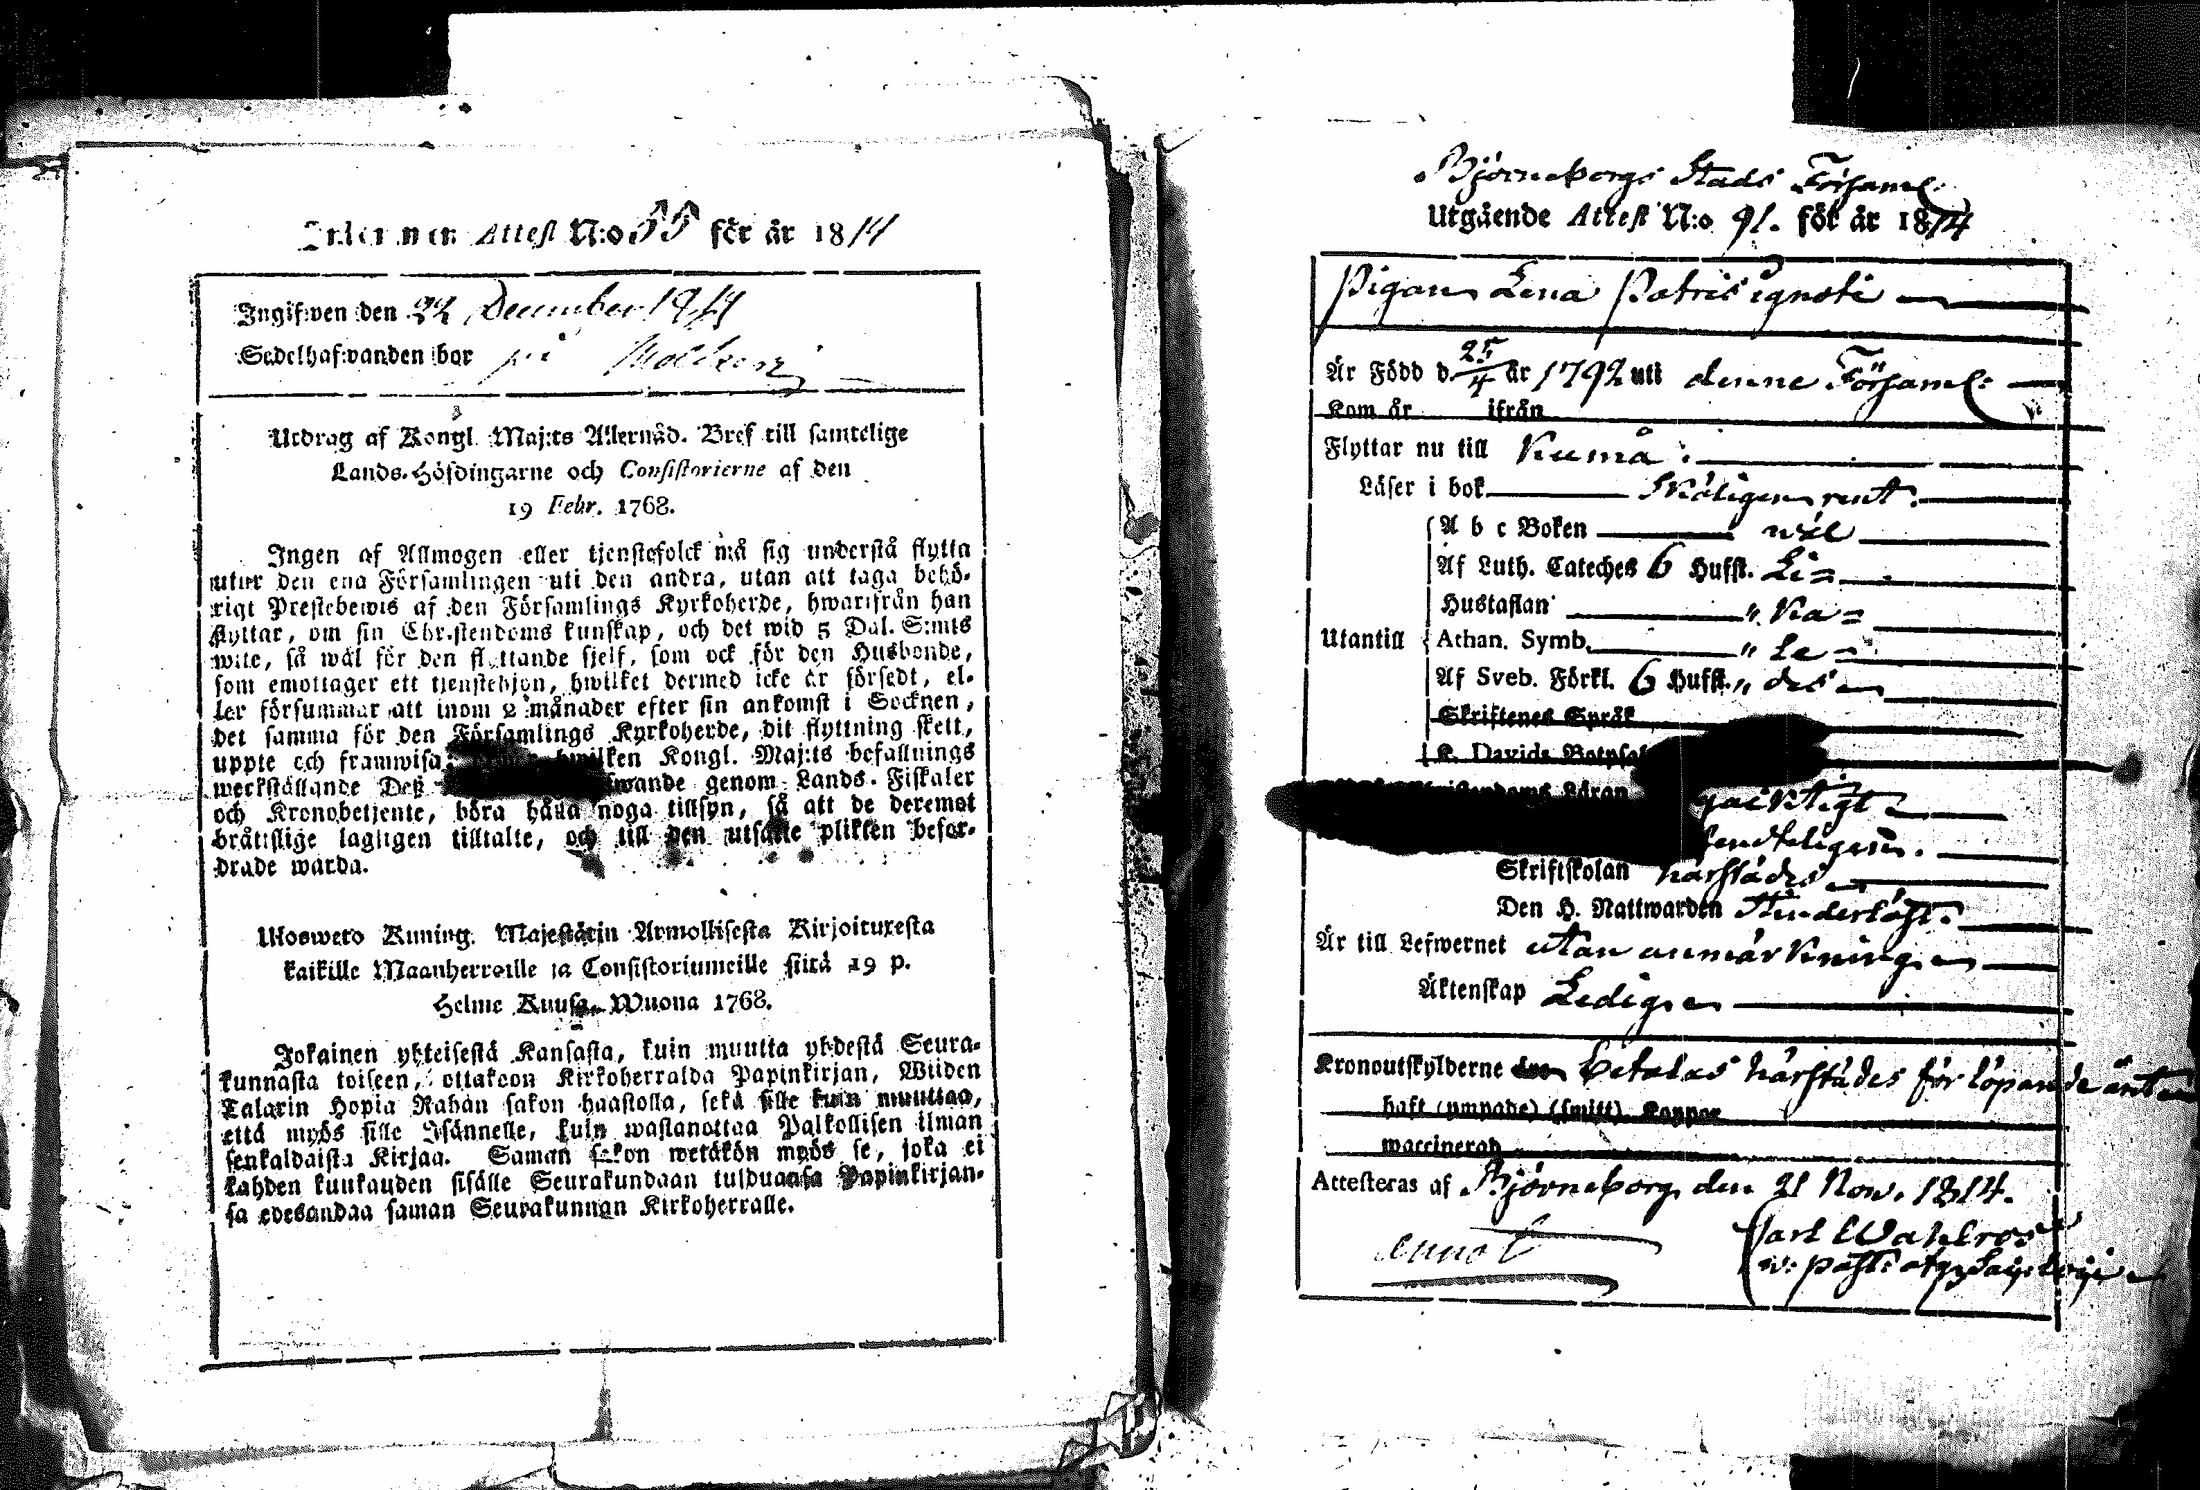 Inkommen Attest N:o 55 för år 1814
Ingifwen den 22 December 1814
Sedelhafwanden bor på
Utdrag af Kongl. Maj:ts Allernåd. Bref till samtelige
Lands-Höfdingarne och Consistorierne af den
19 Febr. 1768.
Ingen af Allmogen eller tjenstefolck må sig understå flytta
utur den ena Församlingen uti den andra, utan att taga behö-
rigt Prestebewis af den Församlings Kyrkoherde, hwarifrån han
flyttar, om sin Christendoms kunskap, och det wid 5 Dal. S:mts
wite, så wäl för den flyttande sjelf, som ock för den Husbonde,
som emottager ett tjenstehjon, hwilket dermed icke är försedt, el-
ler försummar att inom 2 månader efter sin ankomst i Socknen,
det samma för den Församlings Kyrkoherde, dit flyttning skett,
uppte och framwisa; hwilken Kongl. Maj:ts befallnings
werkställande Deß wande genom Lands-Fiskaler
och Kronobetjente, böra hålla noga tillsyn, så att de deremot
bråtslige lagligen tilltalte, och till den utsatte plikten befor-
drade warda.
Ulosweto Kuning. Majestätin Armollisesta Kirjoituxesta
kaikille Maanherroille ja Consistoriumeille siitä 19 p.
Helme Kuusa, Wuona 1768.
Jokainen yhteisestä Kansasta, kuin muutta yhdestä Seura-
kunnasta toiseen, ottakoon Kirkoherralda Papinkirjan, Wiiden
Talarin Hopia Rahan sakon haastolla, sekä sille kuin muuttaa,
että myös sille Isännelle, kuin wastanottaa Palkollisen ilman
senkaldaista Kirjaa. Saman sakon wetäkön myös se, joka ei
kahden kuukauden sisälle Seurakundaan tulduansa Papinkirjan-
sa edesandaa saman Seurakunnan Kirkoherralle.
Björneborgs Stads Församl:
Utgående Attest N:o 91. för år 1814
Pigan Lena Patris ignoti
Är Född d. 25/4 år 1792 uti denne Församl:
Kom år ifrån
Flyttar nu till Kumå:
Läser i bok Skäligen rent.
A b c Boken wäl
Af Luth. Cateches 6 Hufst. Li=
Hustaflan " ka=
Utantill Athan. Symb. " le=
Af Sveb. Förkl. 6 Hufst. " des
Skriftenes Språk
K. Davids Botpsal
Christendoms Läran
Skriftskolan härstädes
Den H. Nattwarden
Är till Lefwernet utan anmärkning
Äktenskap Ledig
Kronoutskylderne betalas härstädes för löpande året
haft (ympade) (smitt) Koppor
waccinerad
Attesteras af Björneborg den 21 Nov. 1814.
Carl Wahlroos